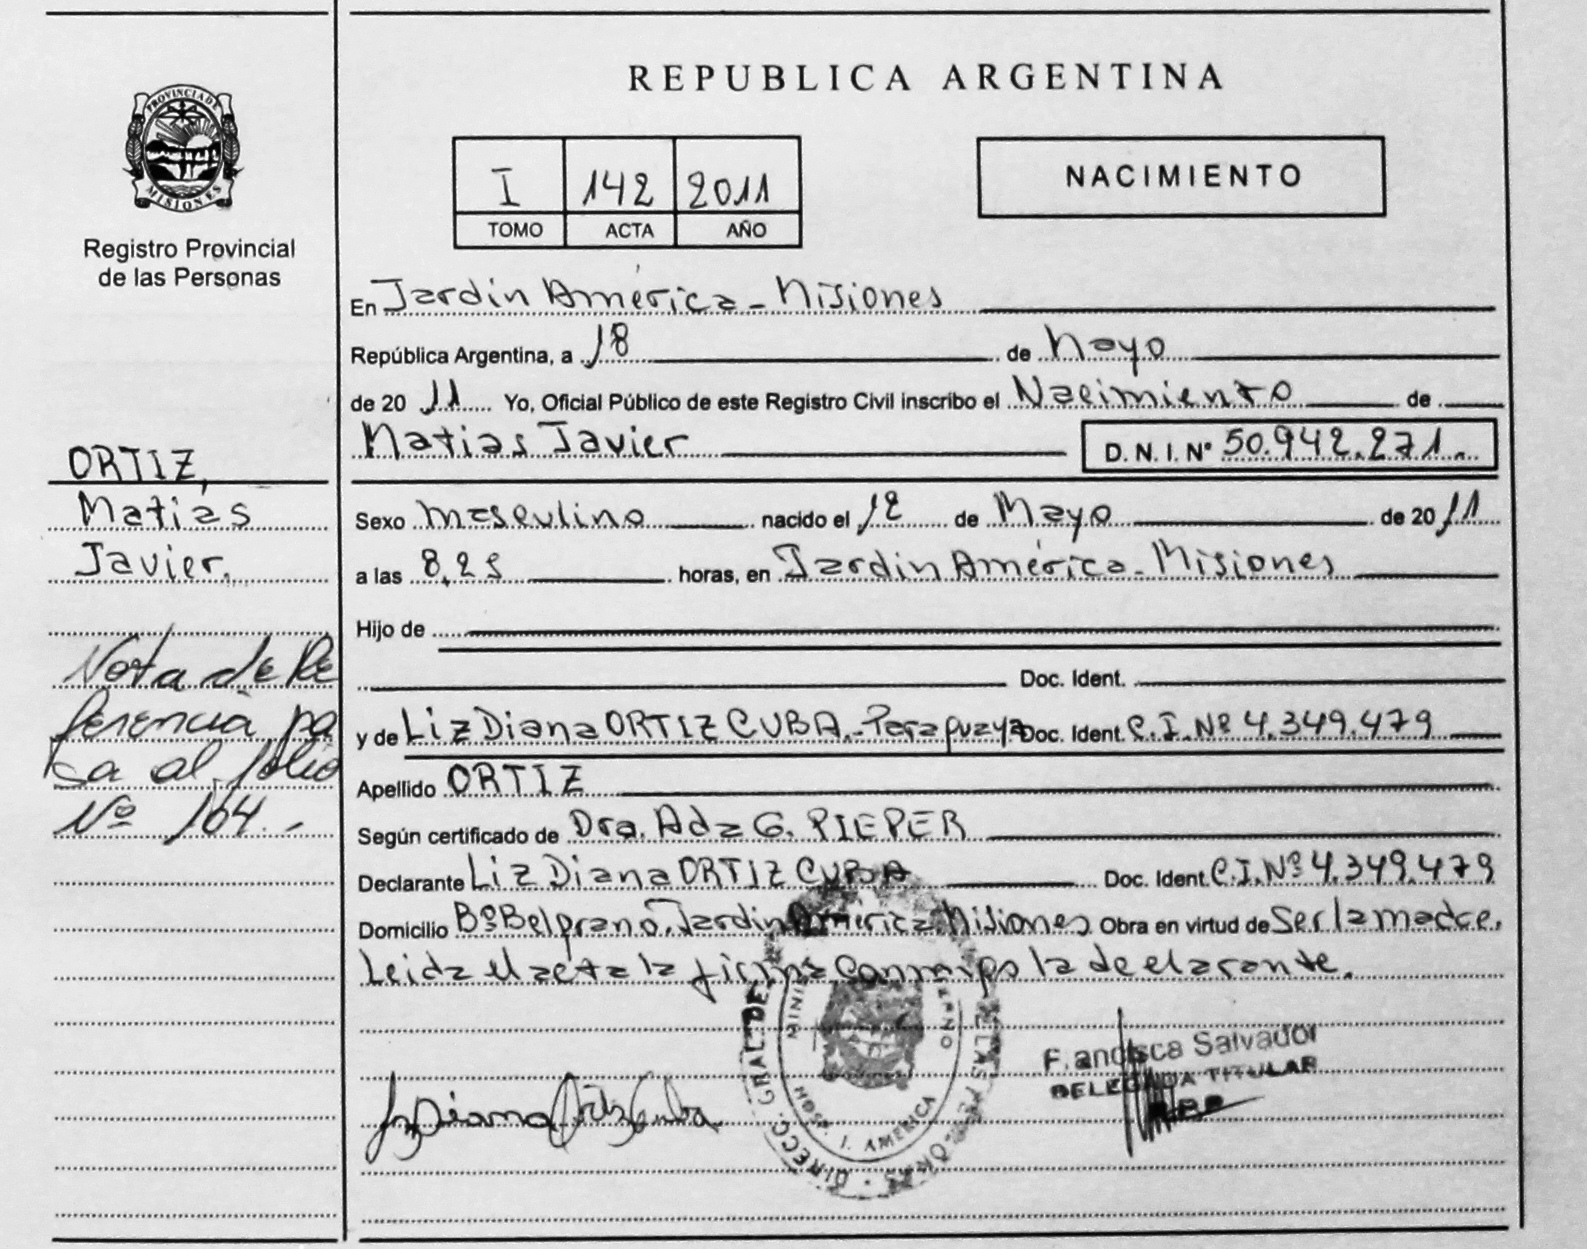 PROVINCIA DE
MISIONES
Registro Provincial
de las Personas
ORTIZ,
Matías
Javier.
Nota de Re
ferencia pa
sa al folio
Nº 164.-
REPUBLICA ARGENTINA
I 142 2011
TOMO ACTA AÑO
NACIMIENTO
En Jardin América - Misiones
República Argentina, a 18 de Mayo
de 20 11 Yo, Oficial Público de este Registro Civil inscribo el Nacimiento de
Matias Javier D.N.I.Nº 50.942.271.-
Sexo masculino nacido el 12 de Mayo de 20 11
a las 8,25 horas, en Jardin América - Misiones
Hijo de
Doc. Ident.
y de Liz Diana ORTIZ CUBA.- Paraguaya Doc. Ident. C.I.Nº 4.349.479
Apellido ORTIZ
Según certificado de Dra. Ada G. PIEPER
Declarante Liz Diana ORTIZ CUBA Doc. Ident. C.I.Nº 4.349.479
Domicilio Bº Belgrano. Jardin América Misiones Obra en virtud de Ser la madre.
Leida el acta la firma conmigo la declarante.
DIRECC. GRAL. DE LAS PERSONAS
I. AMERICA
Liz Diana Ortiz Cuba
Francisca Salvador
DELEGADA TITULAR
R.P.P